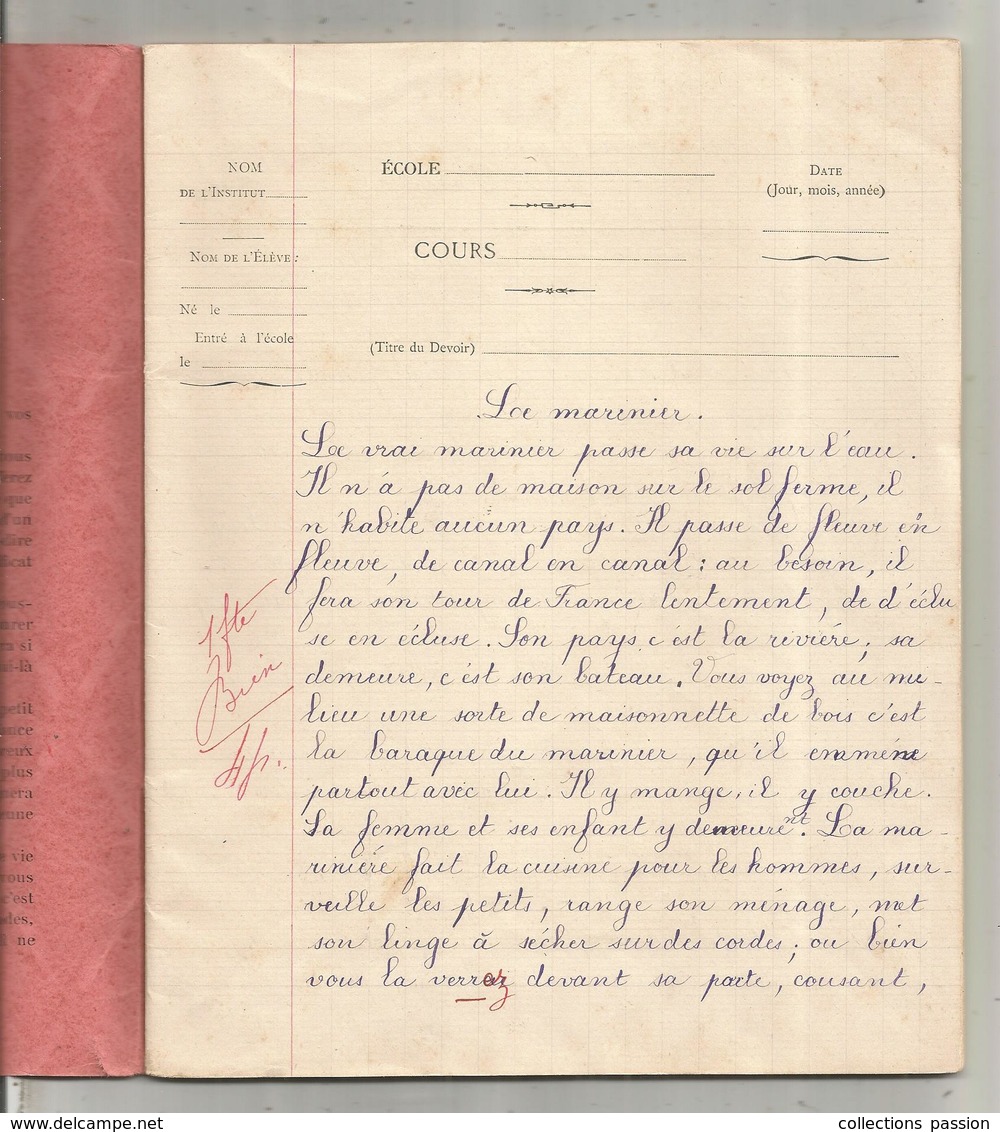 NOM
DE L'INSTITUT
NOM DE L'ÉLÈVE :
Né le
Entré à l'école
le
ÉCOLE
COURS
(Titre du Devoir)
DATE
(Jour, mois, année)
Le marinier.
Le vrai marinier passe sa vie sur l'eau.
Il n'à pas de maison sur le sol ferme, il
n'habite aucun pays. Il passe de fleuve en
fleuve, de canal en canal : au besoin, il
fera son tour de France lentement, de d'éclu
se en écluse. Son pays c'est la riviére, sa
demeure, c'est son bateau. Vous voyez au mi-
lieu une sorte de maisonnette de bois c'est
la baraque du marinier, qu'il emméne
partout avec lui. Il y mange, il y couche.
Sa femme et ses enfant y demeurent. La ma-
riniére fait la cuisine pour les hommes, sur-
veille les petits, range son ménage, met
son linge à sécher sur des cordes ; ou bien
vous la verrez devant sa porte, cousant,
1 fte
Bien
vos
ous
erez
que
d'un
dire
ficat
ous-
arer
ra si
ui-là
petit
ence
reux
plus
nera
eune
vie
vous
c'est
des,
ne
collections passion